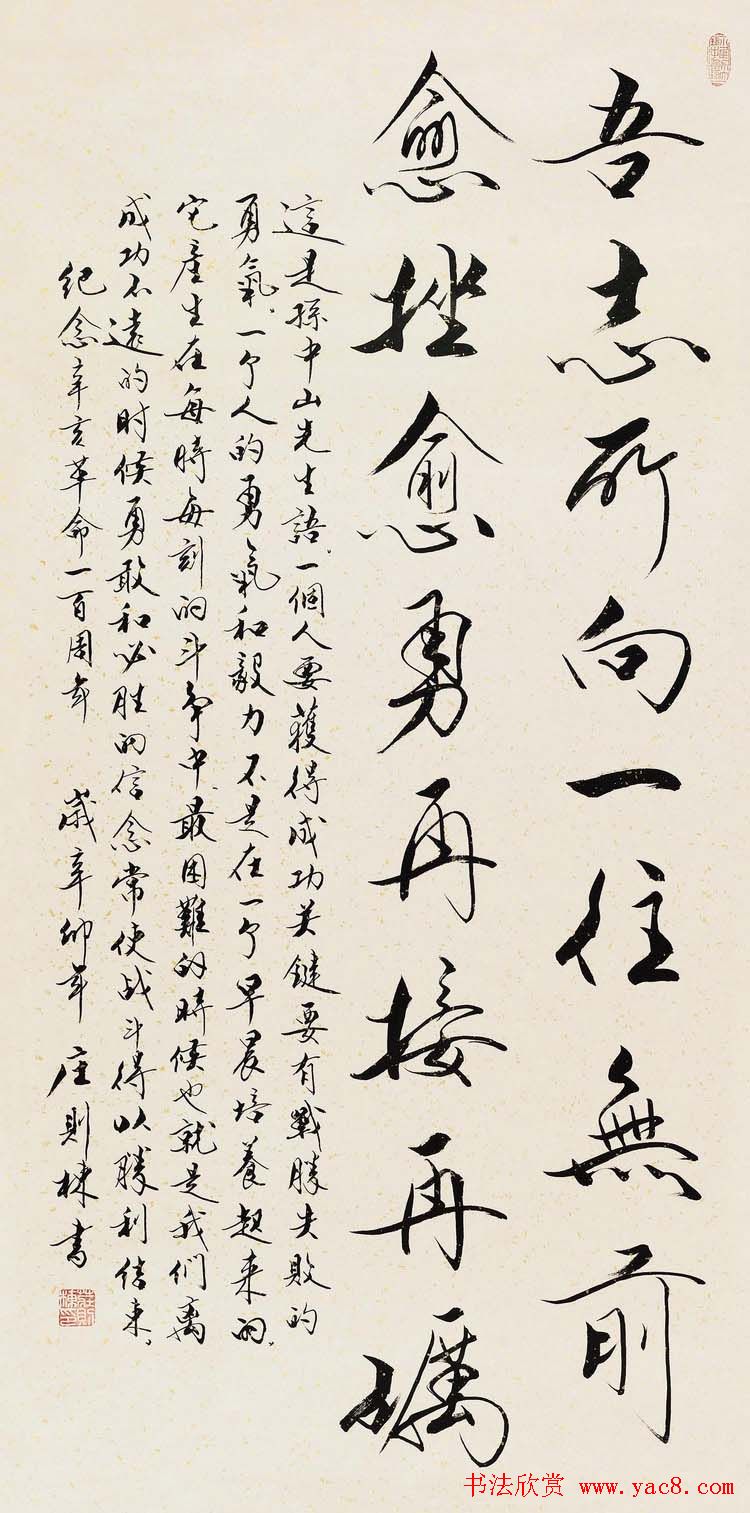 吾志所向一往無前
愈挫愈勇再接再礪
這是孫中山先生語,一個人要獲得成功关鍵要有戰勝失敗的
勇氣,一个人的勇氣和毅力不是在一个早晨培養起来的,
它產生在每時每刻的斗争中,最困難的時候也就是我们离
成功不遠的时候勇敢和必胜的信念常使战斗得以勝利结束,
纪念辛亥革命一百周年 歲辛卯年 庄則棟書
书法欣赏 www.yac8.com